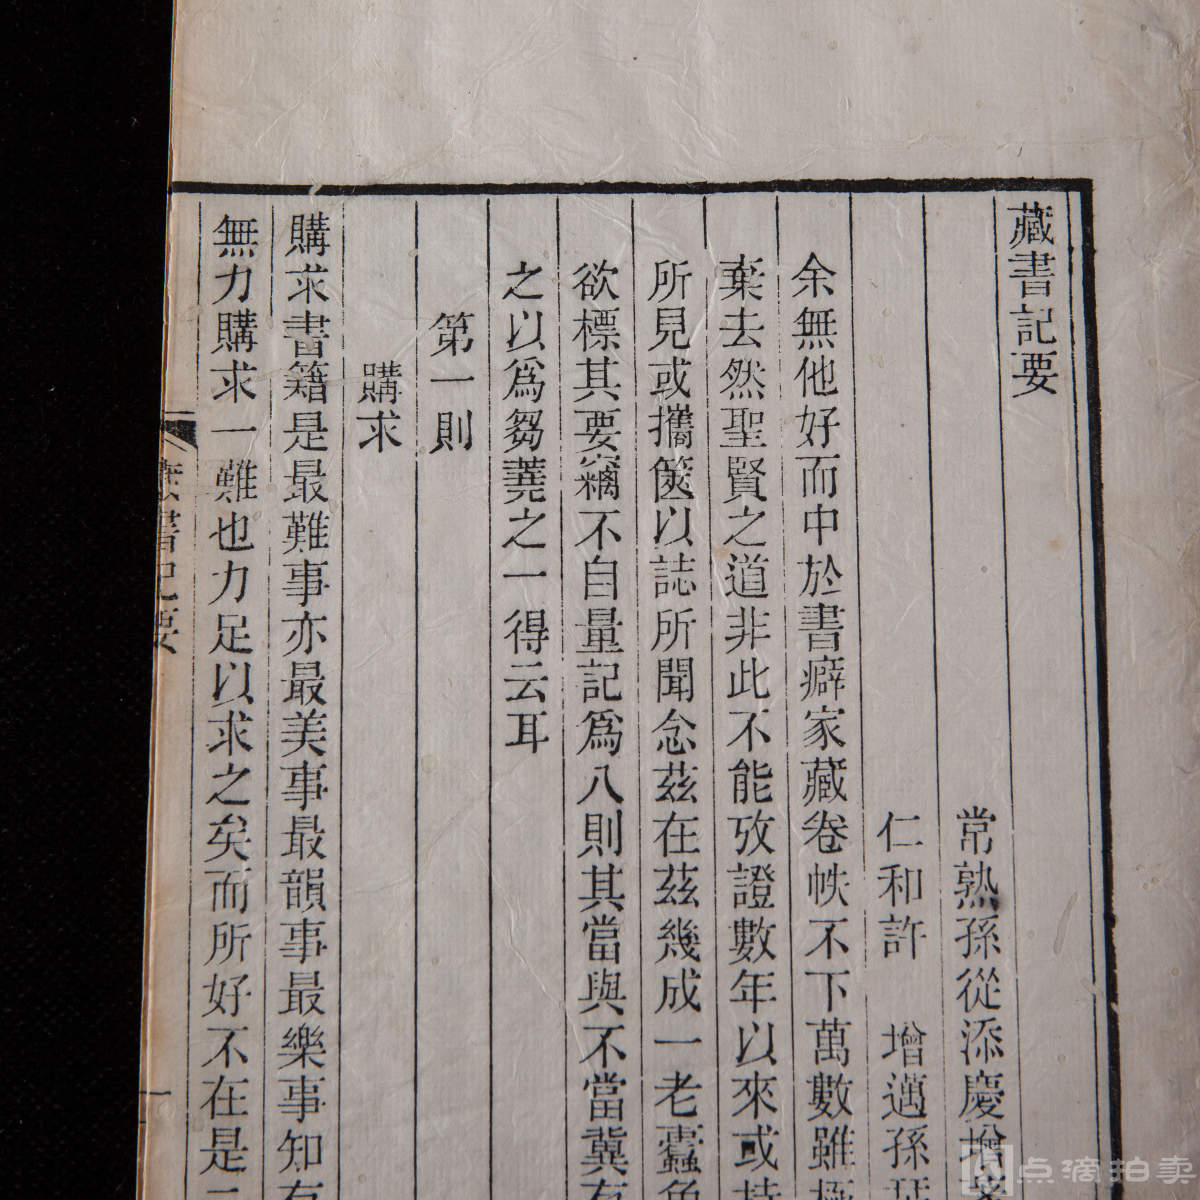 藏書記要
常熟孫從添慶增
仁和許 增邁孫
余無他好而中於書癖家藏卷帙不下萬數雖極
棄去然聖賢之道非此不能攷證數年以來或持
所見或攜篋以誌所聞念茲在茲幾成一老蠹魚
欲標其要竊不自量記爲八則其當與不當冀有
之以爲芻蕘之一得云耳
第一則
購求
購求書籍是最難事亦最美事最韻事最樂事知有
無力購求一難也力足以求之矣而所好不在是二
書記要
一
点滴拍卖